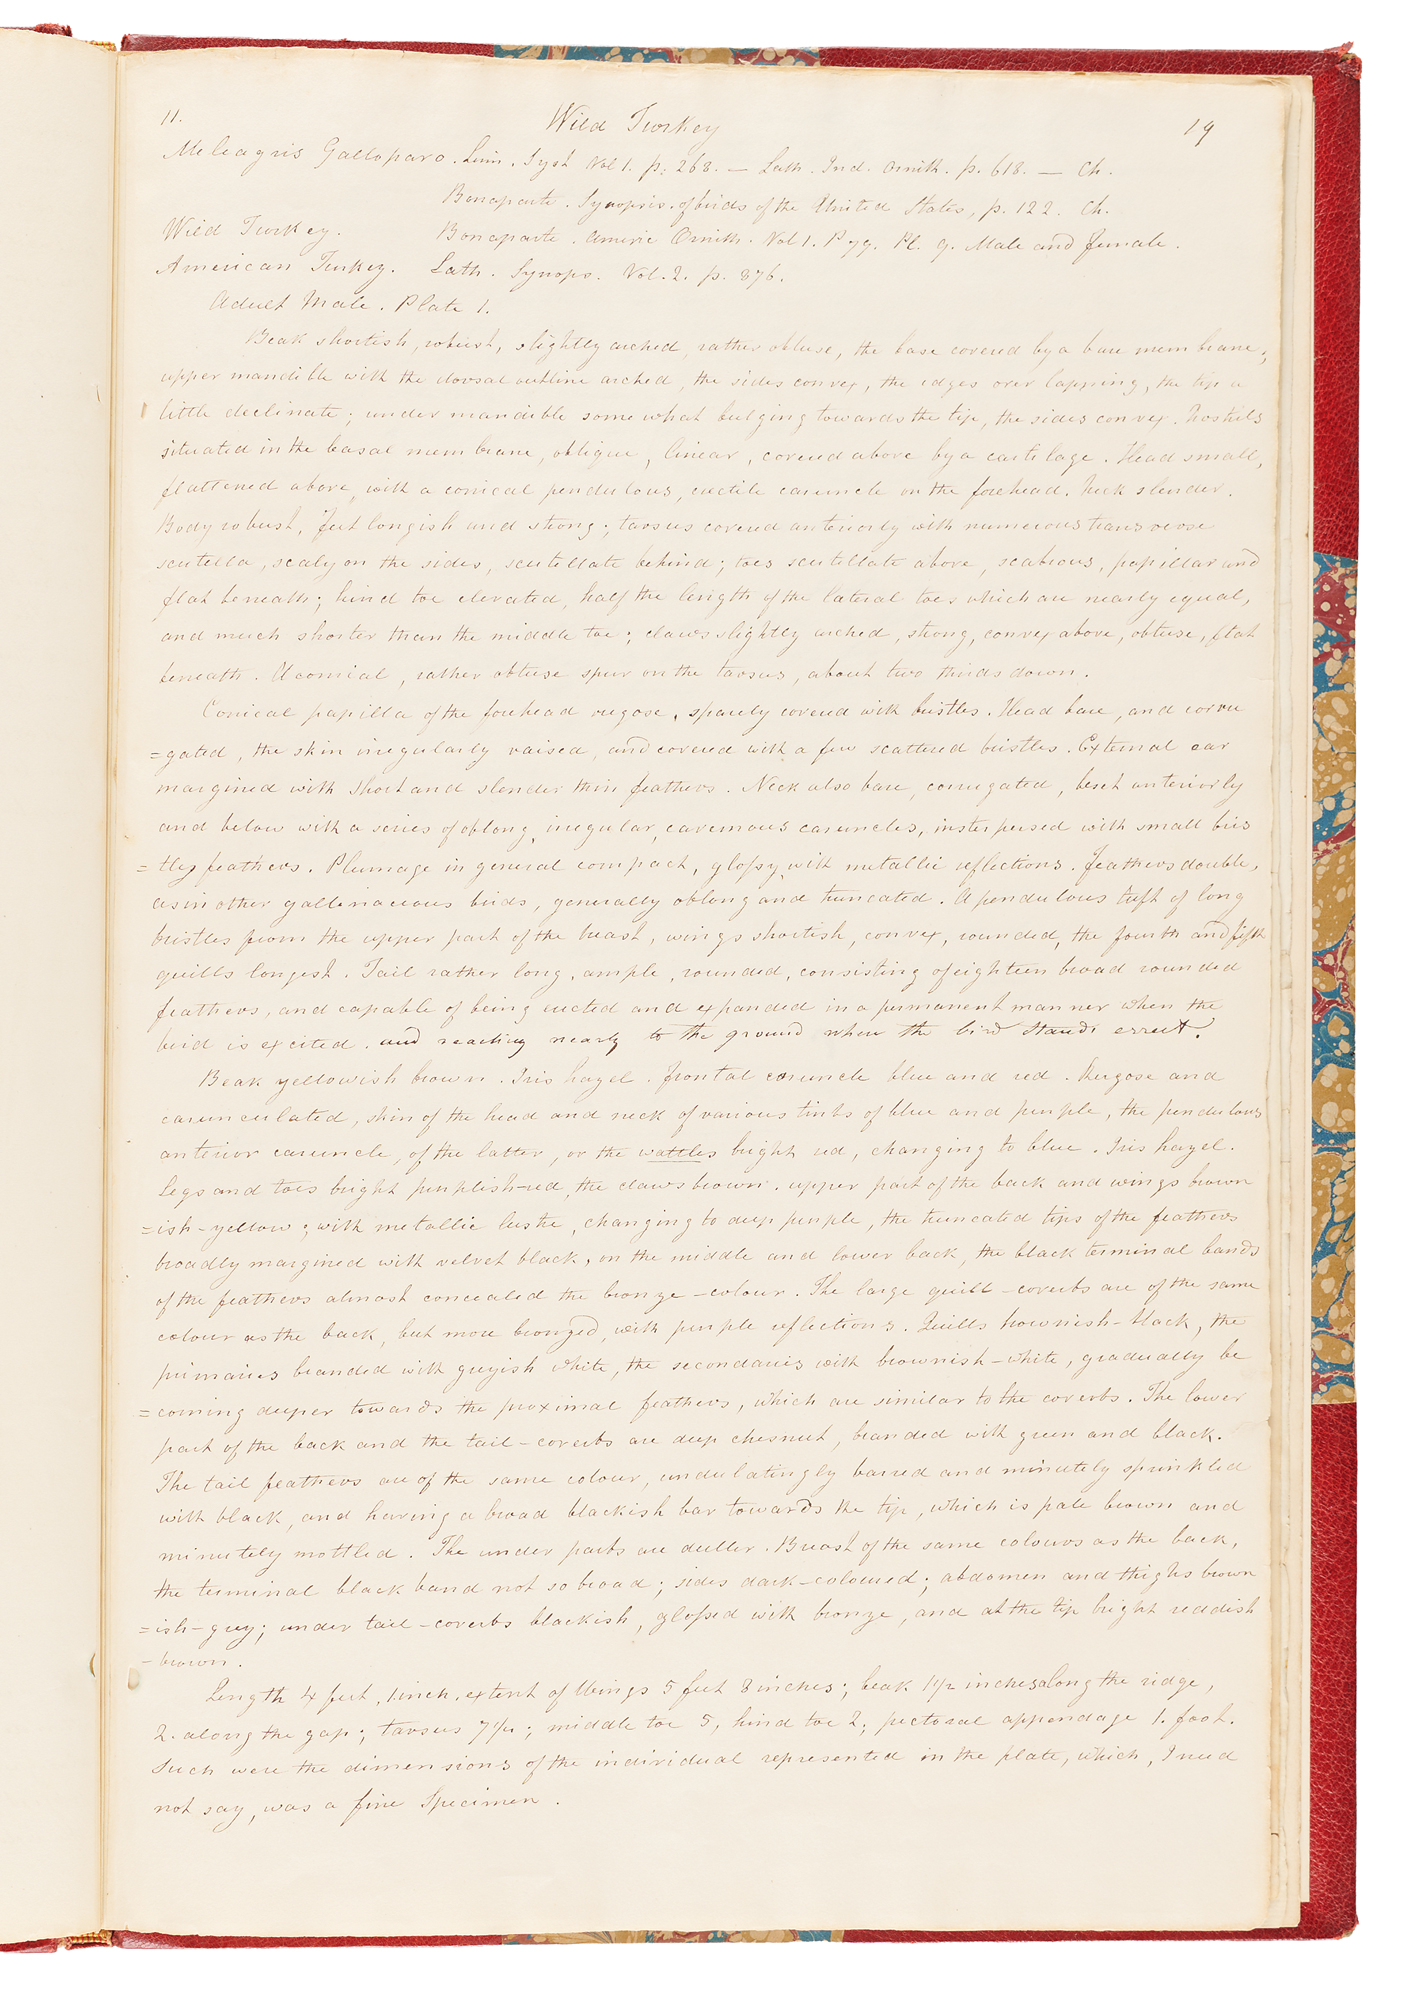 11.
Wild Turkey
19
Meleagris Gallopavo. Linn. Syst Vol 1. p. 268. — Lath. Ind. Ornith. p. 618. — Ch.
Bonaparte. Synopsis. of birds of the United States, p. 122. Ch.
Wild Turkey. Bonaparte. Americ Ornith. Vol 1. P 79. Pl. 9. Male and female.
American Turkey. Lath. Synops. Vol. 2. p. 676.
Adult Male. Plate 1.
Beak shortish, robust, slightly arched, rather obtuse, the base covered by a bare membrane;
upper mandible with the dorsal outline arched, the sides convex, the edges overlapping, the tip a
little declinate; under mandible somewhat bulging towards the tip, the sides convex. Nostrils
situated in the basal membrane, oblique, linear, covered above by a cartilage. Head small,
flattened above, with a conical pendulous, erectile caruncle on the forehead. Neck slender.
Body robust, feet longish and strong; tarsus covered anteriorly with numerous transverse
scutella, scaly on the sides, scutellate behind; toes scutellate above, scabrous, papillar and
flat beneath; hind toe elevated, half the length of the lateral toes which are nearly equal,
and much shorter than the middle toe; claws slightly arched, strong, convex above, obtuse, flat
beneath. A conical, rather obtuse spur on the tarsus, about two thirds down.
Conical papilla of the forehead rugose, sparely covered with bristles. Head bare, and corru
=gated, the skin irregularly raised, and covered with a few scattered bristles. External ear
margined with short and slender thin feathers. Neck also bare, corrugated, beset anteriorly
and below with a series of oblong, irregular, cavernous caruncles, interspersed with small bris
=tley feathers. Plumage in general compact, glossy, with metallic reflections. feathers double,
as in other gallinaceous birds, generally oblong and truncated. A pendulous tuft of long
bristles from the upper part of the breast, wings shortish, convex, rounded, the fourth and fifth
quills longest. Tail rather long, ample, rounded, consisting of eighteen broad rounded
feathers, and capable of being erected and expanded in a permanent manner when the
bird is excited. and reaching nearly to the ground when the bird stands errect.
Beak yellowish brown. Iris hazel. frontal caruncle blue and red. Rugose and
carunculated, skin of the head and neck of various tints of blue and purple, the pendulous
anterior caruncle, of the latter, or the wattles bright red, changing to blue. Iris hazel.
Legs and toes bright purplish-red, the claws brown. upper part of the back and wings brown
=ish-yellow; with metallic lustre, changing to deep purple, the truncated tips of the feathers
broadly margined with velvet black, on the middle and lower back, the black terminal bands
of the feathers almost concealed the bronze-colour. The large quill-coverts are of the same
colour as the back, but more bronzed, with purple reflections. Quills brownish-black, the
primaries branded with greyish white, the secondaries with brownish-white, gradually be
=coming deeper towards the proximal feathers, which are similar to the coverts. The lower
part of the back and the tail-coverts are deep chesnut, branded with green and black.
The tail feathers are of the same colour, undulatingly barred and minutely sprinkled
with black, and having a broad blackish bar towards the tip, which is pale brown and
minutely mottled. The under parts are duller. Breast of the same colours as the back,
the terminal black band not so broad; sides dark-coloured; abdomen and thighs brown
=ish-grey; under tail-coverts blackish, glossed with bronze, and at the tip bright reddish
-brown.
Length 4 feet, 1 inch, extent of Wings 5 feet 8 inches; beak 1 1/2 inches along the ridge,
2. along the gap; tarsus 7 1/4; middle toe 5, hind toe 2; pectoral appendage 1. foot.
Such were the dimensions of the individual represented in the plate, which, I need
not say, was a fine Specimen.